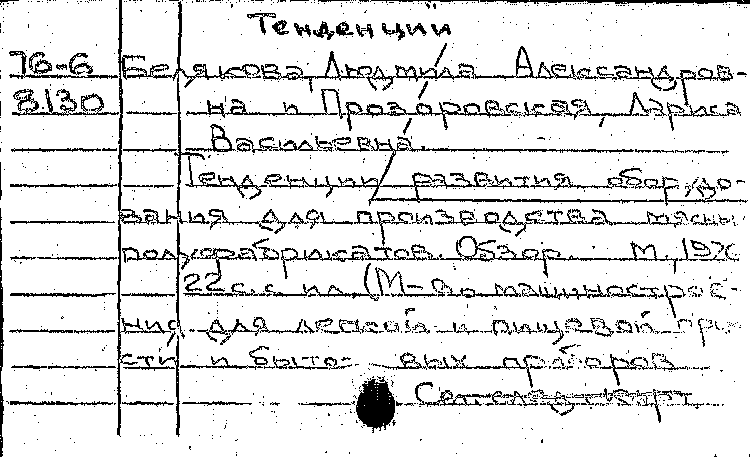 Тенденции
76-6 Белякова, Людмила Александров-
8130 на и Прозоровская, Лариса
Васильевна.
Тенденции развития обору,до-
вания для производства мясных
полуфабрикатов. Обзор. М., 197
22 с. с ил. (М-во машинострое-
ния для легкой и пищевой пр
сти и быто- вых приборов
См. след. карт.